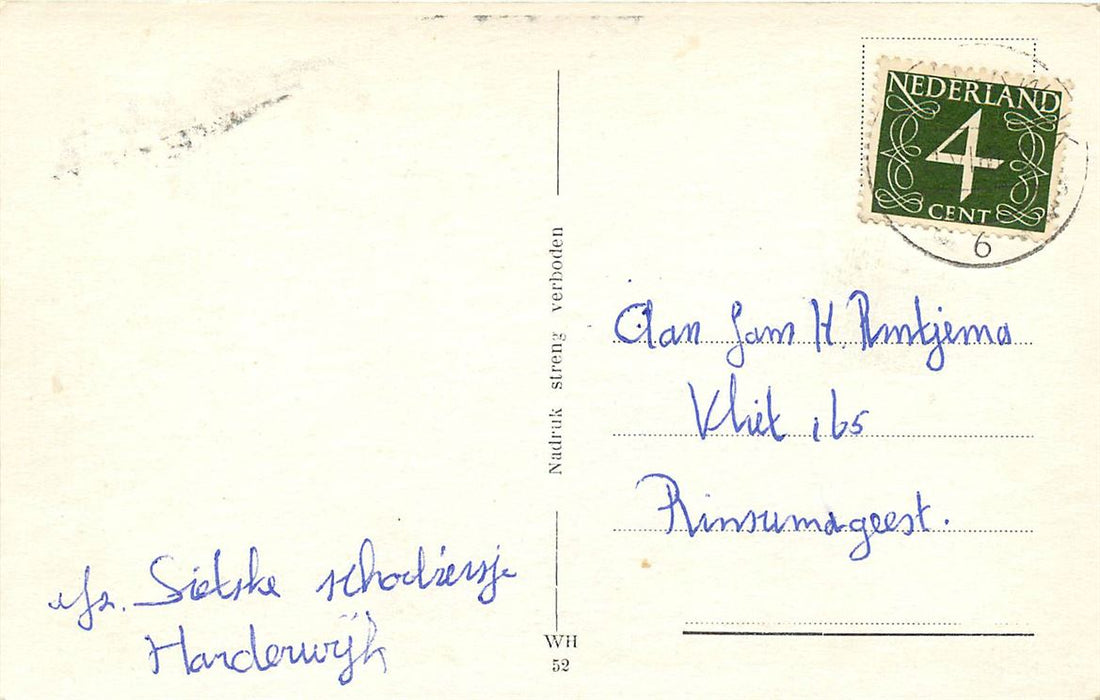 NEDERLAND
4
CENT
6
Aan Fam H. Rintjema
Vliet 165
Rinsumageest.
Nadruk streng verboden
afz. Sietske
Harderwijk
WH
52